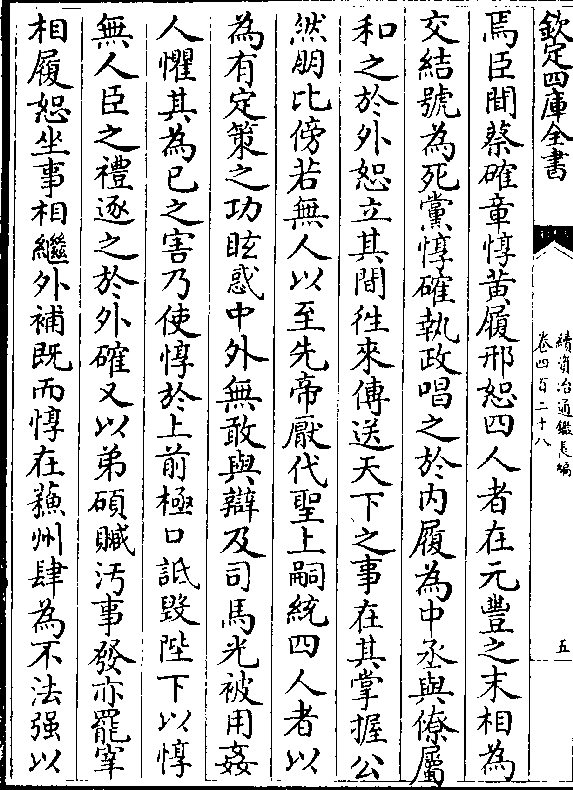 欽定四庫全書
續資治通鑑長編
卷四百二十八
五
焉臣聞蔡確章惇黄履邢恕四人者在元豐之末相為
交結號為死黨惇確執政唱之於内履為中丞與僚屬
和之於外恕立其間徃來傳送天下之事在其掌握公
然朋比傍若無人以至先帝厭代聖上嗣統四人者以
為有定策之功眩惑中外無敢與辯及司馬光被用姦
人懼其為已之害乃使惇於上前極口詆毁陛下以惇
無人臣之禮逐之於外確又以弟碩贓汚事發亦罷宰
相履恕坐事相繼外補既而惇在蘇州肆為不法强以